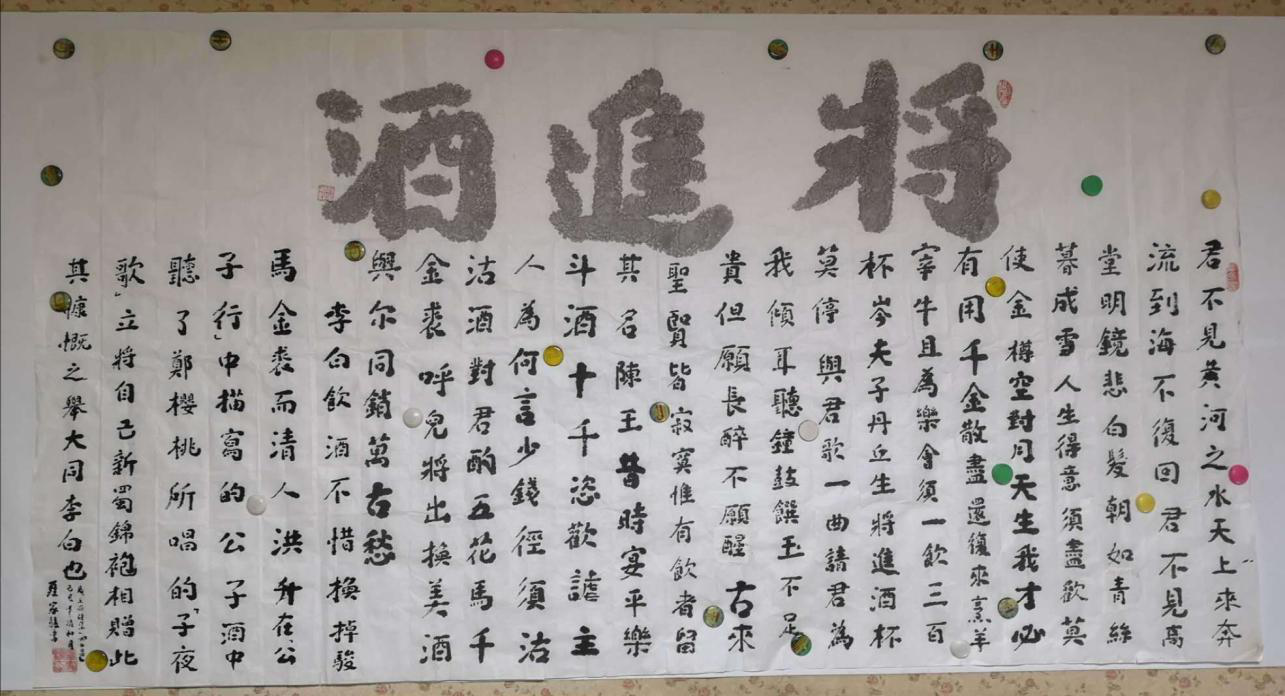 將進酒
君不見黃河之水天上來奔
流到海不復回君不見高
堂明鏡悲白髮朝如青絲
暮成雪人生得意須盡歡莫
使金樽空對月天生我才必
有用千金散盡還復來烹羊
宰牛且為樂會須一飲三百
杯岑夫子丹丘生將進酒杯
莫停與君歌一曲請君為
我傾耳聽鐘鼓饌玉不足
貴但願長醉不願醒古來
聖賢皆寂寞惟有飲者留
其名陳王昔時宴平樂
斗酒十千恣歡謔主
人為何言少錢徑須沽
沽酒對君酌五花馬千
金裘呼兒將出換美酒
與尔同銷萬古愁
李白飲酒不惜換掉駿
馬金裘而清人洪升在公
子行」中描寫的公子酒中
聽了鄭櫻桃所唱的「子夜
歌」立將自己新蜀錦袍相贈此
其慷慨之舉大同李白也